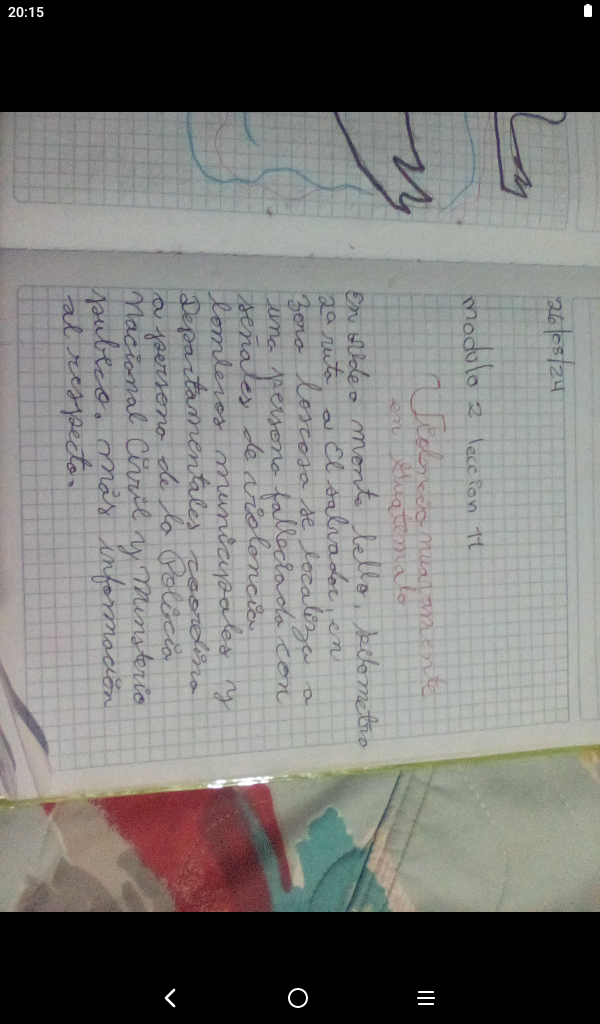 20:15
26/08/24
Modulo 2 leccion 11
nuevamente
en Guatemala
En Aldea monte bello, kilometro
22 ruta a El salvador, en
Zona boscosa se localiza a
una persona fallecida con
señales de violencia
bomberos municipales y
Departamentales coordina
a persona de la Policia
Nacional Civil y Minsterio
publico. más información
al respecto.